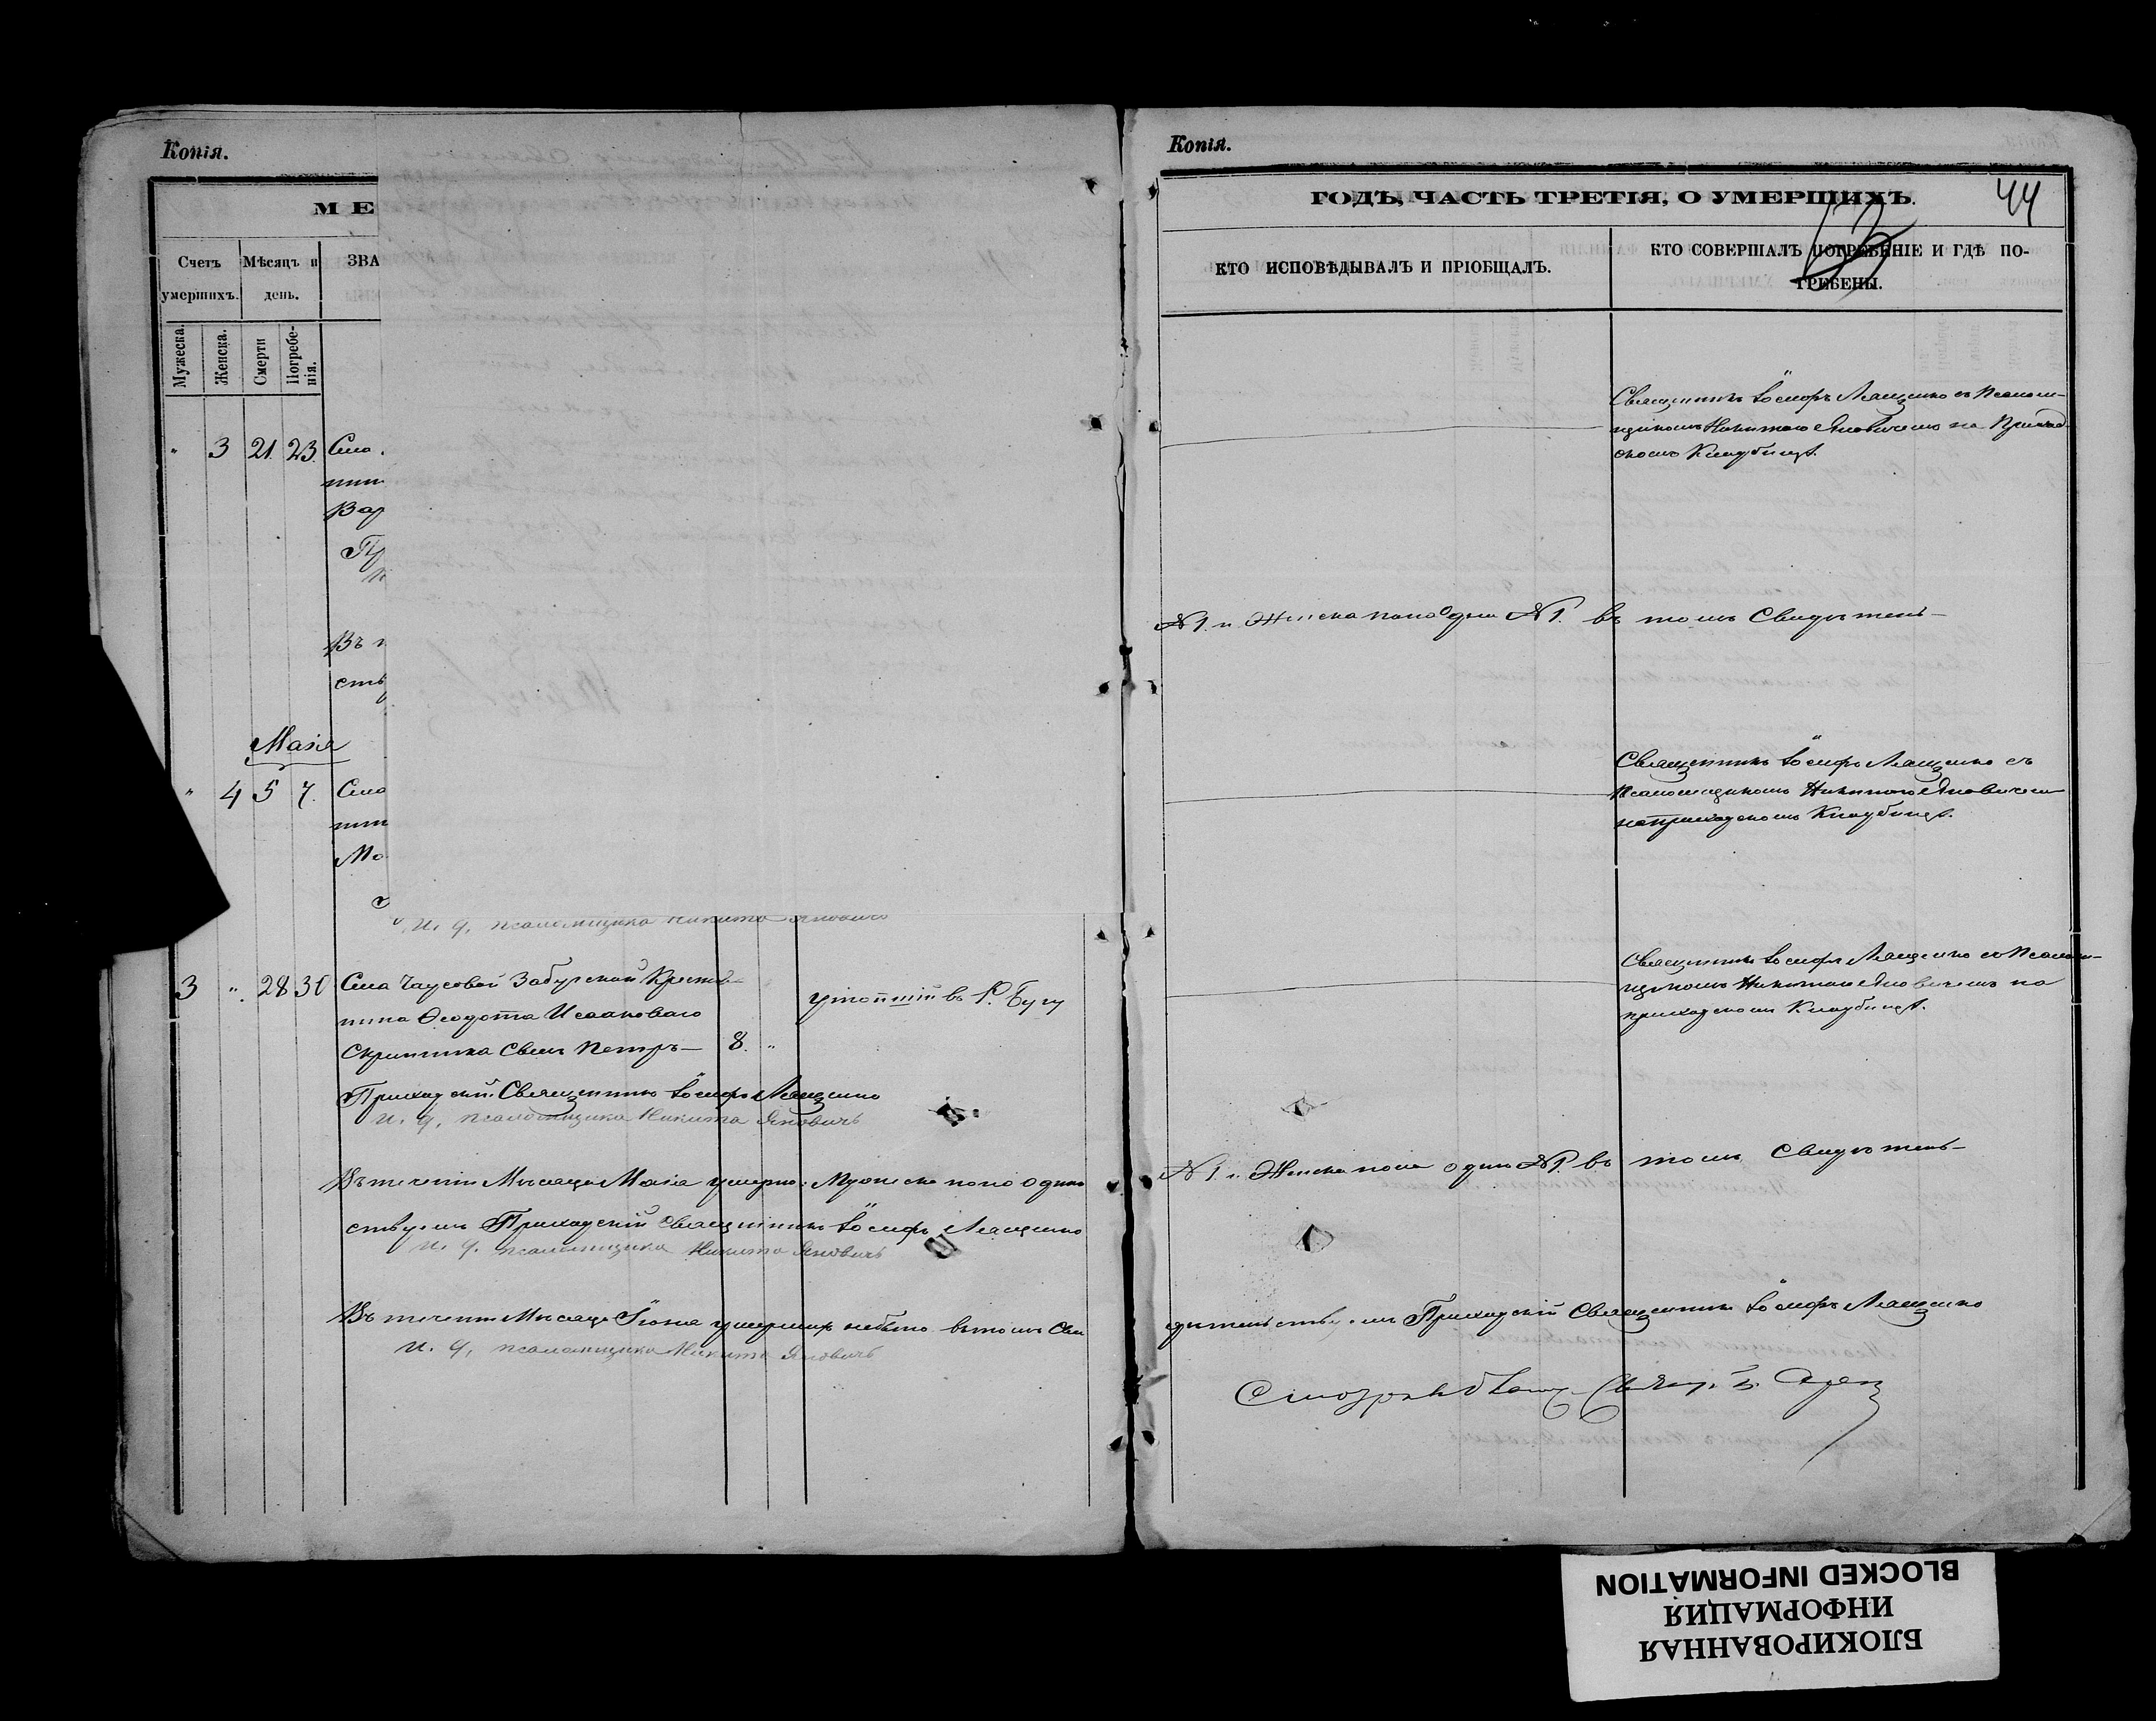 Копія.
МЕ
Счетъ умершихъ.
Мѣсяцъ и день.
ЗВА
Мужеска.
Женска.
Смерти
Погребенія.
" 3 21. 23. Села
Вар
Въ
ств
Маія
" 4 5 7. Села
Мо
и. д. псаломщика Никита Яновичъ
3 " 28 30 Села Чаусовой Забугской Крестья-
нина Ѳеодота Исаакова
Скрипника Сынъ Петръ — 8. "
утопшій в Р. Бугу
Приходскій Священникъ Іосифъ Лященко
и. д. псаломщика Никита Яновичъ
Въ теченіи Мѣсяца Маія умерло: Мужеска пола одинъ
ствуемъ Приходскій Священникъ Іосифъ Лященко
и. д. псаломщика Никита Яновичъ
Въ теченіи Мѣсяца Іюня умершихъ небыло вътомъ Сви
и. д. псаломщика Никита Яновичъ
Копія.
ГОДЪ, ЧАСТЬ ТРЕТІЯ, О УМЕРШИХЪ.
44
КТО ИСПОВѢДЫВАЛЪ И ПРІОБЩАЛЪ.
КТО СОВЕРШАЛЪ ПОГРЕБЕНІЕ И ГДѢ ПО-
ГРЕБЕНЫ.
Священникъ Іосифъ Лященко съ Псалом-
щикомъ Никитою Яновичемъ на Приход
скомъ Кладбищѣ.
№1. и Женска пола Одна №1. въ томъ Свидѣтель-
Священникъ Іосифъ Лященко съ
Псаломщикомъ Никитою Яновичемъ
на приходскомъ Кладбищѣ.
Священникъ Іосифъ Лященко съ Псалом-
щикомъ Никитою Яновичемъ на
приходскомъ Кладбищѣ.
№1. и Женска пола одна №1. въ томъ Свидѣтель-
дѣтельствуемъ Приходскій Священникъ Іосифъ Лященко
BLOCKED INFORMATION
ИНФОРМАЦИЯ
БЛОКИРОВАННАЯ